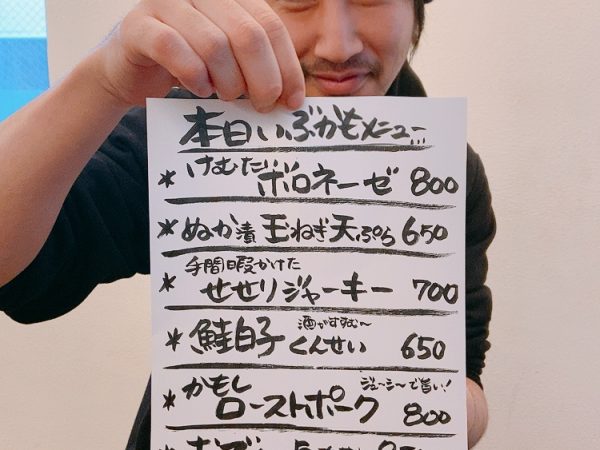 本日いぶかもメニュー
* けむたい ボロネーゼ 800
* ぬか漬玉ねぎ天ぷら 650
手間暇かけた
* せせりジャーキー 700
酒がすすむ〜
* 鮭白子くんせい 650
ジューシーで旨い!
* かもしローストポーク 800
*